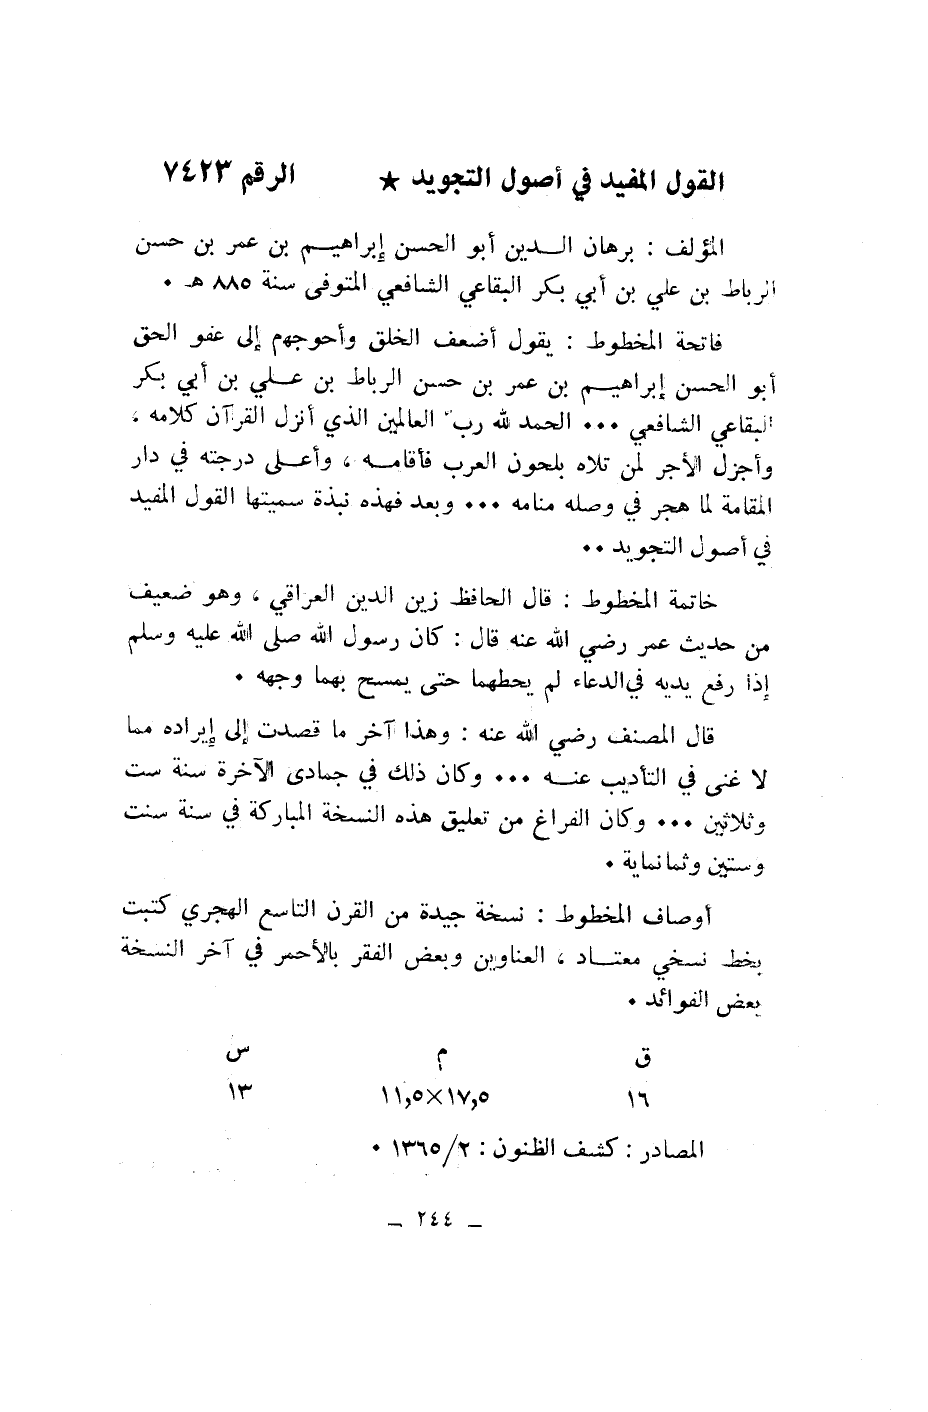 القول المفيد في أصول التجويد ★ الرقم ٧٤٢٣
المؤلف : برهان الدين أبو الحسن إبراهيم بن عمر بن حسن
الرباط بن علي بن أبي بكر البقاعي الشافعي المتوفى سنة ٨٨٥ هـ •
فاتحة المخطوط : يقول أضعف الخلق وأحوجهم إلى عفو الحق
أبو الحسن إبراهيم بن عمر بن حسن الرباط بن علي بن أبي بكر
البقاعي الشافعي ••• الحمد لله ربّ العالمين الذي أنزل القرآن كلامه ،
وأجزل الأجر لمن تلاه بلحون العرب فأقامه ، وأعلى درجته في دار
المقامة لما هجر في وصله منامه ••• وبعد فهذه نبذة سميتها القول المفيد
في أصول التجويد ••
خاتمة المخطوط : قال الحافظ زين الدين العراقي ، وهو ضعيف
من حديث عمر رضي الله عنه قال : كان رسول الله صلى الله عليه وسلم
إذا رفع يديه في الدعاء لم يحطهما حتى يمسح بهما وجهه •
قال المصنف رضي الله عنه : وهذا آخر ما قصدت إلى إيراده مما
لا غنى في التأديب عنه ••• وكان ذلك في جمادى الآخرة سنة ست
وثلاثين ••• وكان الفراغ من تعليق هذه النسخة المباركة في سنة سنت
وستين وثمانماية •
أوصاف المخطوط : نسخة جيدة من القرن التاسع الهجري كتبت
بخط نسخي معتاد ، العناوين وبعض الفقر بالأحمر في آخر النسخة
بعض الفوائد •
ق م س
١٦ ١٧,٥×١١,٥ ١٣
المصادر : كشف الظنون : ٢/١٣٦٥ •
– ٢٤٤ –